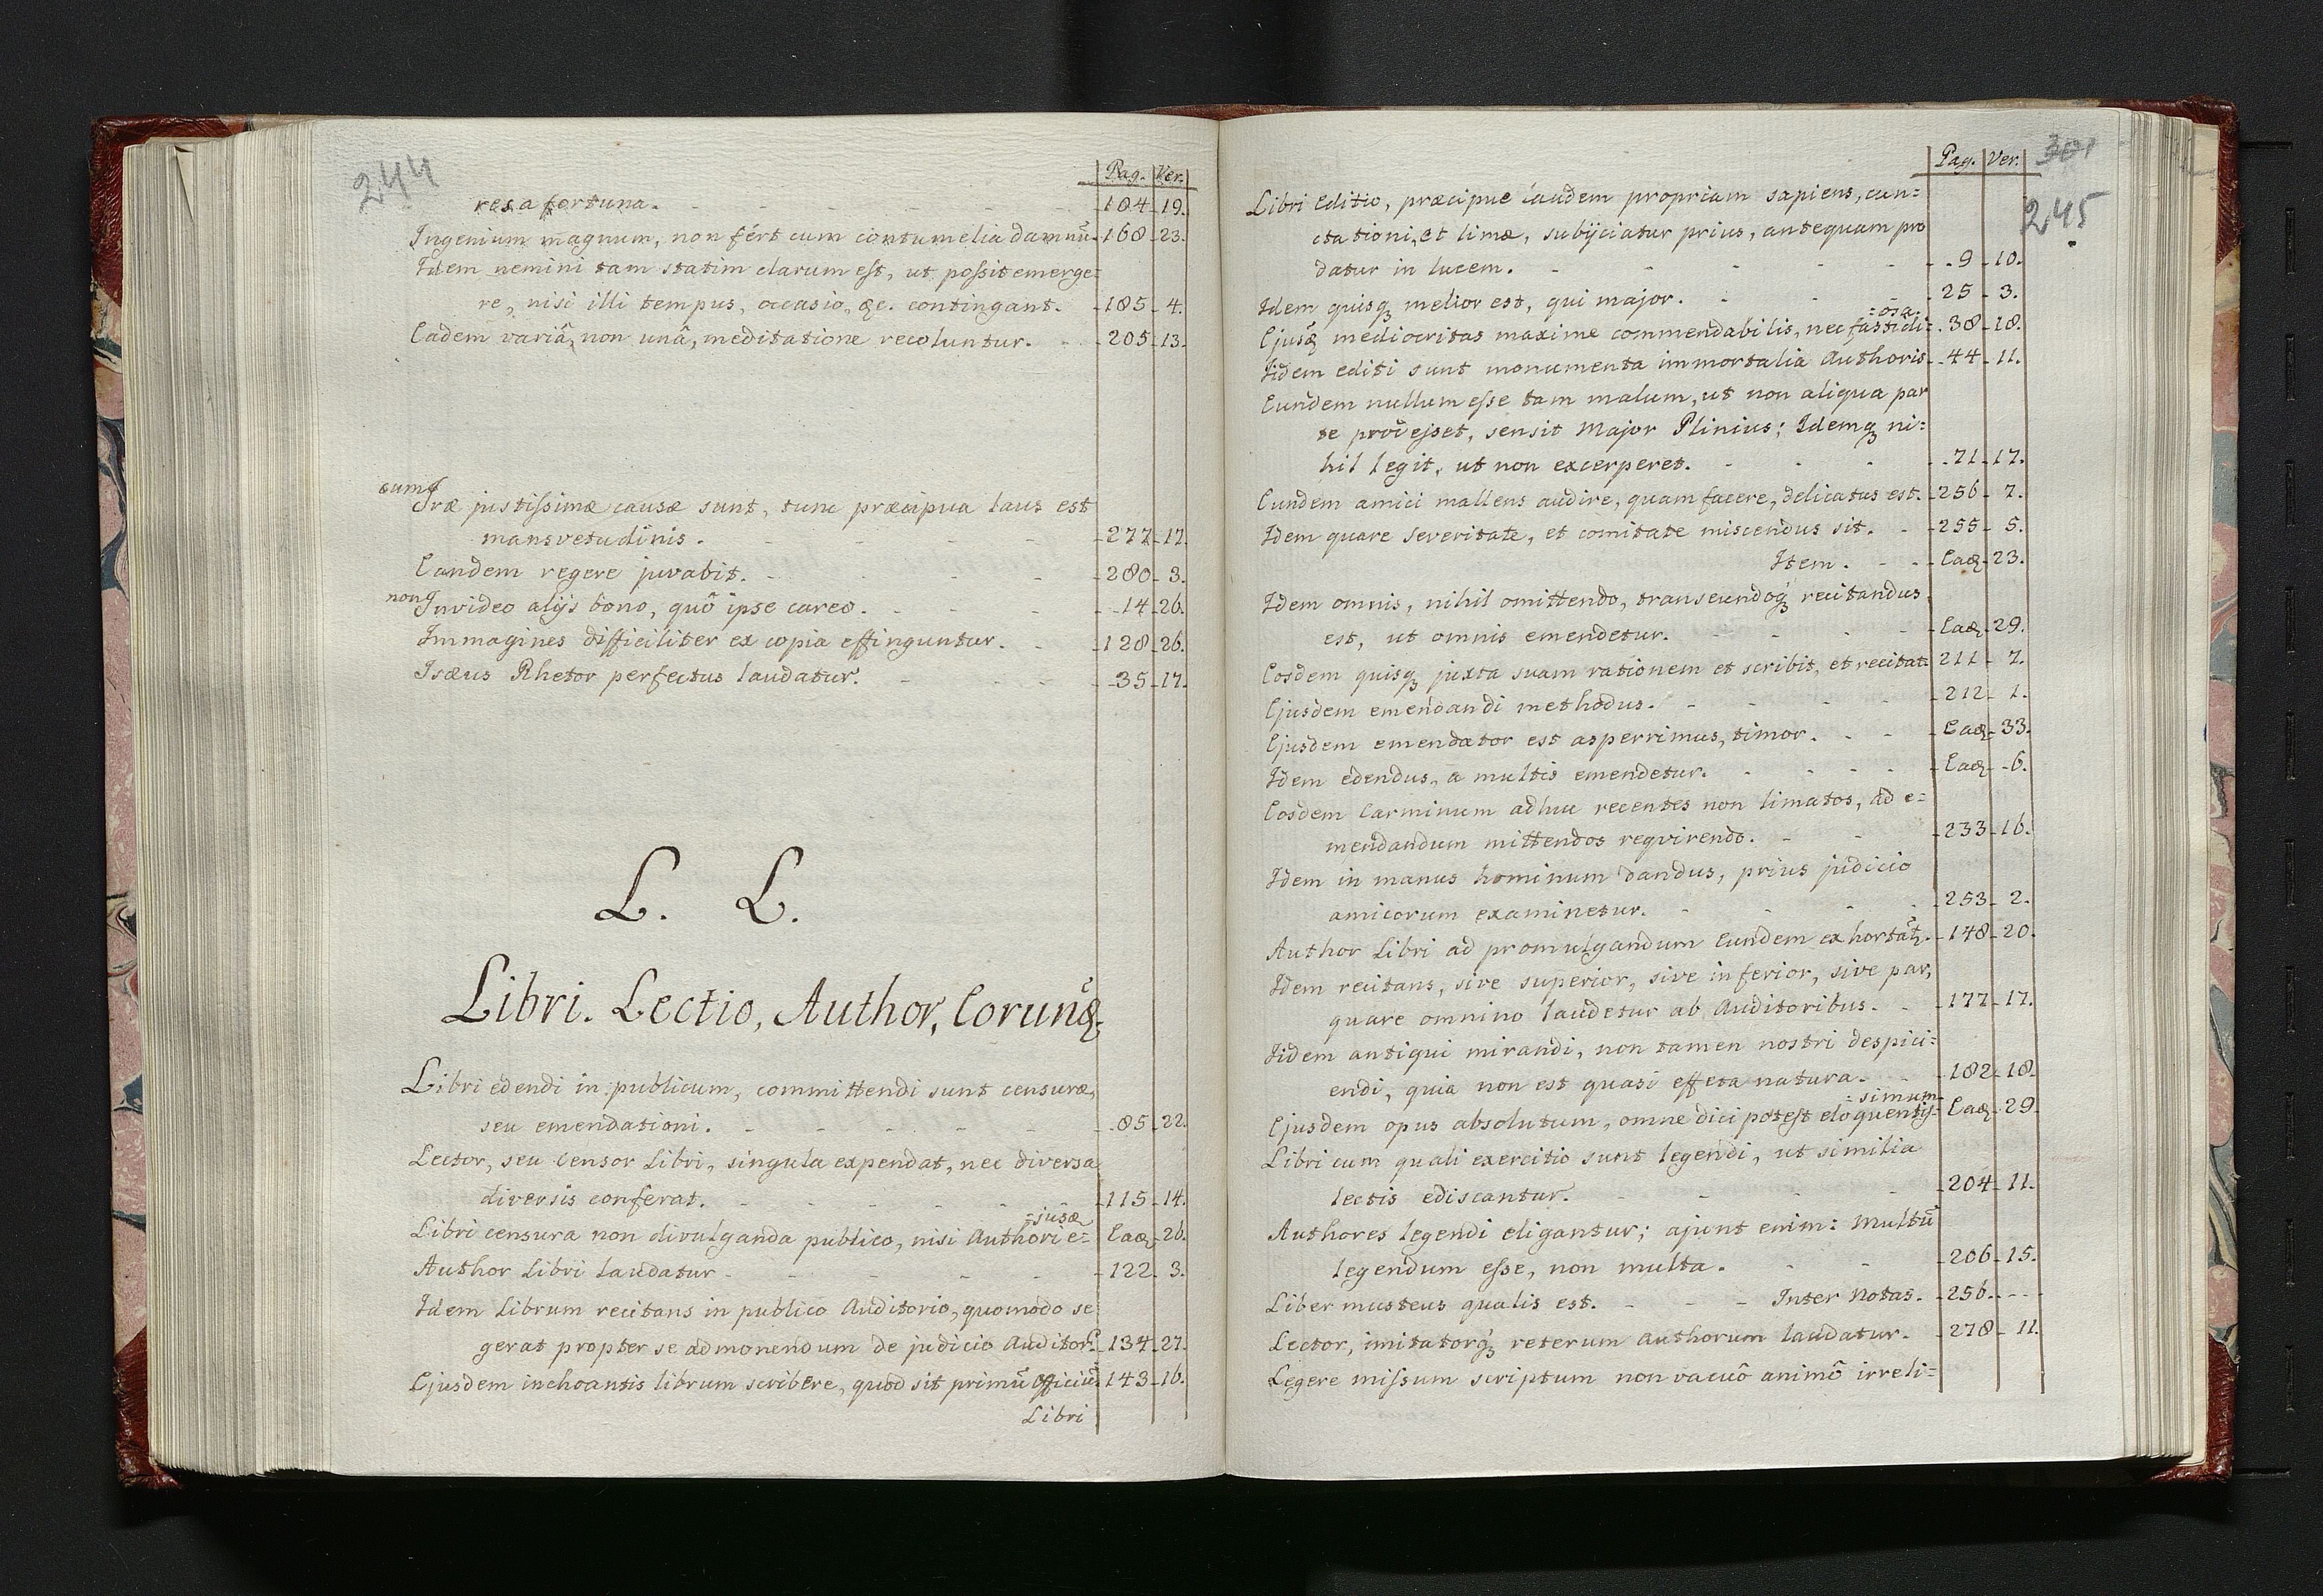 244
Pag. Ver.
res a fortuna. 184 19.
Ingenium magnum, non fért cum contumelia damnū 168 23.
Idem nemini tam statim clarum est, ut possit emerge=
re, nisi illi tempus, occasio, &c. contingant. 185 4.
Eadem variâ, non unâ, meditatione recoluntur. 205 13.
cum
Iræ justissimæ causæ sunt, tunc præcipua laus est
mansvetudinis. 277 17.
Eandem regere juvabit. 280 3.
non Invideo alijs bono, quô ipse careo. 14 26.
Immagines difficiliter ex copia effinguntur. 128 26.
Isæus Rhetor perfectus laudatur. 35 17.
L. L.
Libri. Lectio, Author, Eorumq;
Libri edendi in publicum, committendi sunt censuræ,
seu emendationi. 85 22.
Lector, seu Censor Libri, singula expendat, nec diversa
diversis conferat. 115 14.
=jusq
Libri censura non divulganda publico, nisi Authori e= Eaq 26.
Author Libri laudatur 122 3.
Idem Librum recitans in publico Auditorio, quomodo se
gerat propter se admonendum de judicio Auditor. 134 27.
Ejusdem inchoantis librum scribere, quod sit primū officiū 143 16.
Libri
301
245
Pag. Ver.
Libri Editio, præcipue laudem propriam sapiens, cun=
ctationi, et limæ, subijciatur prius, antequam pro
datur in lucem. 9 10.
Idem quisq; melior est, qui major. 25 3.
=osa.
Ejusq mediocritas maxime commendabilis, nec fastidi= 38 18.
Iidem editi sunt monumenta immortalia Authoris 44 11.
Eundem nullum esse tam malum, ut non aliqua par
te prodesset, sensit Major Plinius; Idemq; ni=
hil legit, ut non excerperet. 71 17.
Eundem amici mallens audire, quam facere, delicatus est. 256 7.
Idem quare severitate, et comitate miscendus sit. 255 5.
Item. Eaq 23.
Idem omnis, nihil omittendo, transeundoq; recitandus
est, ut omnis emendetur. Eaq 29.
Eosdem quisq; juxta suam rationem et scribit, et recitat 211 7.
Ejusdem emendandi methodus. 212 1.
Ejusdem emendator est asperrimus, timor. Eaq 33.
Idem edendus, a multis emendetur. Eaq 6.
Eosdem Carminum adhuc recentes non limatos, ad e=
mendandum mittendos reqvirendo. 233 16.
Idem in manus hominum dandus, prius judicio
amicorum examinetur. 253 2.
Author Libri ad promulgandum Eundem exhortat. 148 20.
Idem recitans, sive superior, sive inferior, sive par,
quare omnino laudetur ab Auditoribus. 177 17.
Iidem antiqui mirandi, non tamen nostri despici=
endi, quia non est quasi effeta natura. 182 18.
=simum
Ejusdem opus absolutum, omne dici potest eloquentis= Eaq 29.
Libri cum quali exercitio sunt legendi, ut similia
lectis ediscantur. 204 11.
Authores legendi eligantur; ajunt enim: Multū
legendum esse, non multa. 206 15.
Liber musteus qualis est. Inter Notas. 256.
Lector, imitatorq; veterum Authorum laudatur. 278 11.
Legere missum scriptum non vacuô animô irreli=